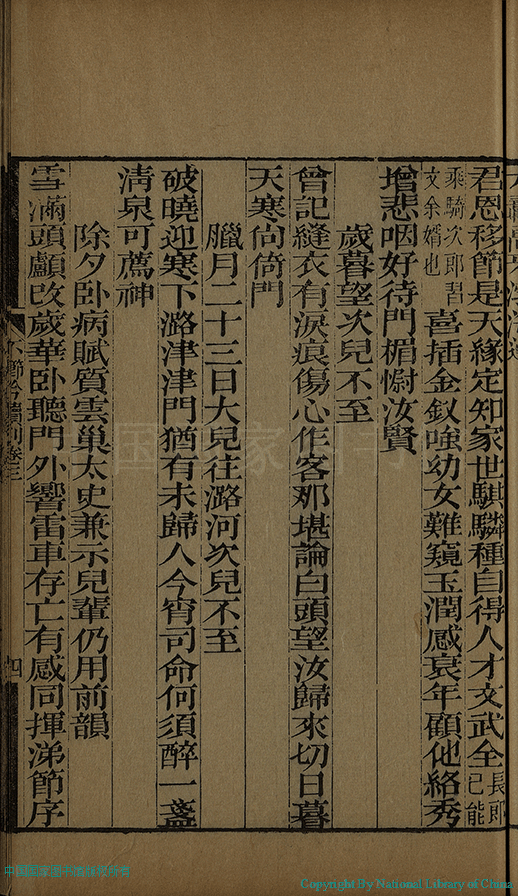 君恩移節是天緣定知家世騏驎種自得人才文武全長郎已能
乘騎次郎習文余婿也喜插金釵唯幼女難窺玉潤感衰年顧他絡秀
增悲咽好待門楣慰汝賢
歲暮望次兒不至
曾記縫衣有淚痕傷心作客那堪論白頭望汝歸來切日暮
天寒尙倚門
臘月二十三日大兒往潞河次兒不至
破曉迎寒下潞津津門猶有未歸人今宵司命何須醉一盞
淸泉可薦神
除夕臥病賦質雲巢太史兼示兒輩仍用前韻
雪滿頭顱改歲華臥聽門外響雷車存亡有感同揮涕節序
卷三
四
Copyright By National Library of China